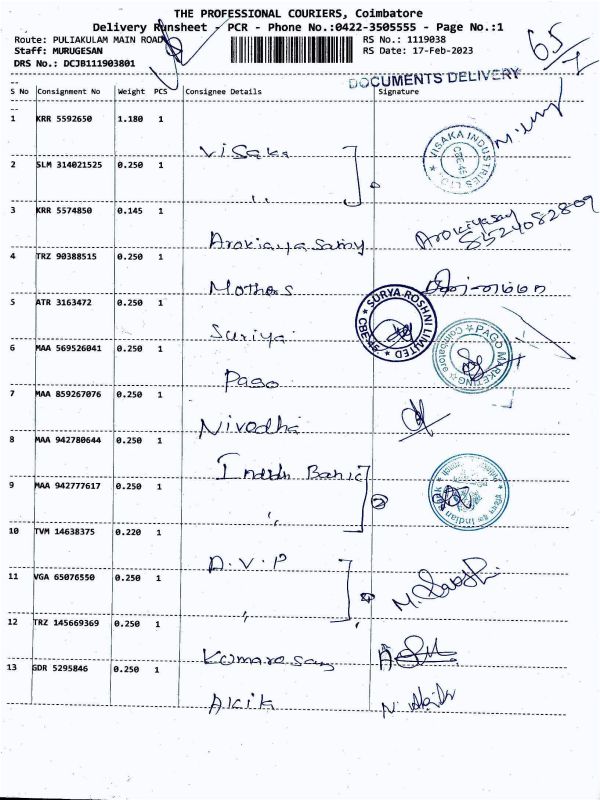 THE PROFESSIONAL COURIERS, Coimbatore
Delivery Runsheet - PCR - Phone No.:0422-3505555 - Page No.:1
Route: PULIAKULAM MAIN ROAD
RS No.: 1119038
Staff: MURUGESAN
RS Date: 17-Feb-2023
DRS No.: DCJB111903801
65/7
DOCUMENTS DELIVERY
S No Consignment No Weight PCS Consignee Details Signature
1 KRR 5592650 1.180 1 Visaka
VISAKA INDUSTRIES LTD. CBE-45
2 SLM 314021525 0.250 1 ,,
3 KRR 5574850 0.145 1 Arokiayasamy Arokiyasay
8524082809
4 TRZ 90388515 0.250 1 Mothers
5 ATR 3163472 0.250 1 Suriya
SURYA ROSHNI LIMITED CBE-45
6 MAA 569526041 0.250 1 Pago
PAGO MARKETING Coimbatore
7 MAA 859267076 0.250 1 Nivedha
8 MAA 942780644 0.250 1 Indian Bank
9 MAA 942777617 0.250 1 ,,
Indian
10 TVM 14638375 0.220 1 A.V.P
11 VGA 65076550 0.250 1 ,,
12 TRZ 145669369 0.250 1 Kumaresan
13 GDR 5295846 0.250 1 Akik